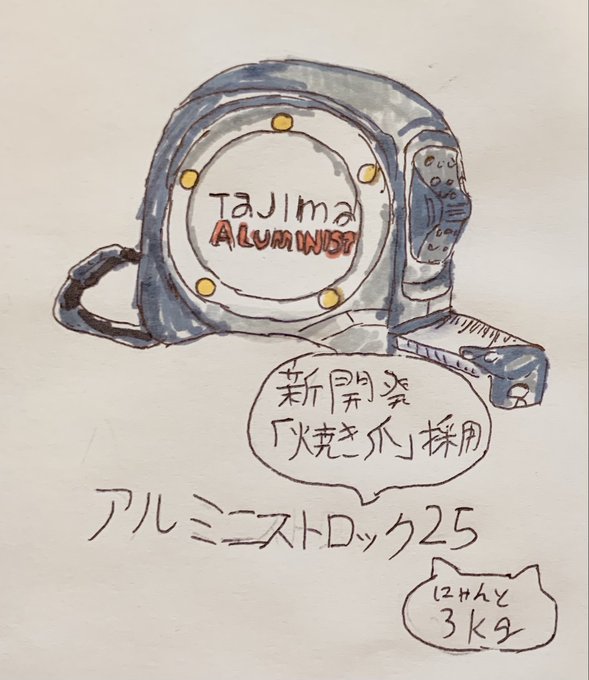 TaJIma
ALUMINIST
新開発
「焼き爪」採用
アルミニストロック25
にゃんと
3kg